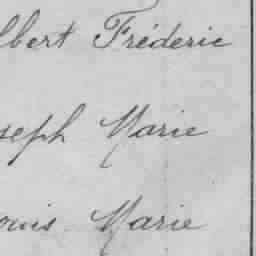 lbert Fréderic
seph Marie
ouis Marie